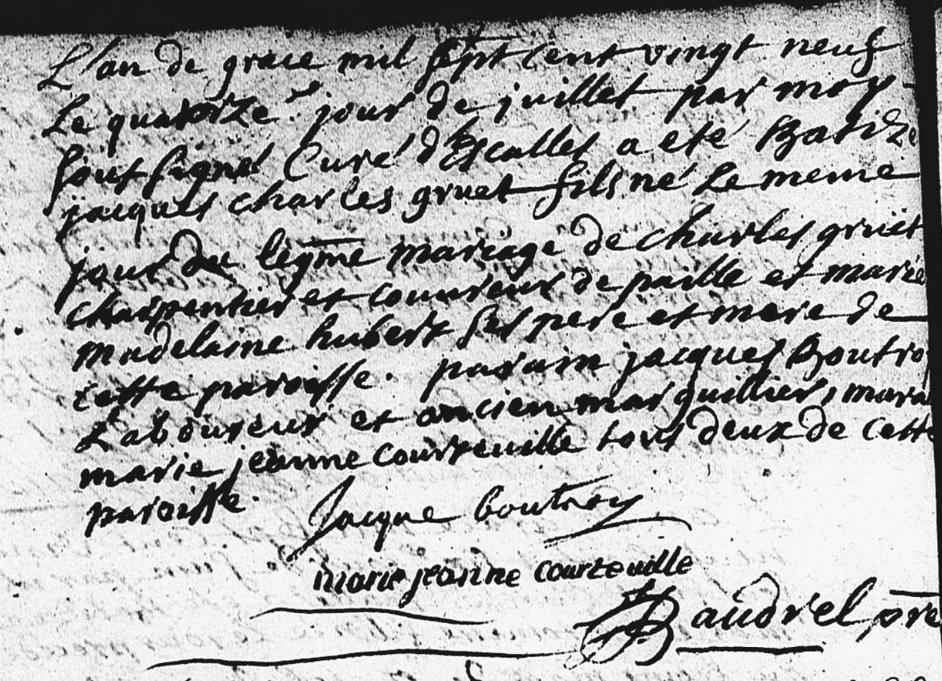 L'an de grace mil sept cent vingt neuf
Le quatorze.e jour de juillet par moy
soussigné Curé d'Escalles a eté Batizé
jacques charles gruet fils né Le meme
jour du legme mariage de charles gruet
charpentier et couvreur de paille et marie
madelaine hubert ses pere et mere de
cette paroisse. parain jacques Boutroy
Laboureur et ancien marguillier, mara
marie jeanne courteuille tous deux de cette
paroisse.
jacque boutroy
marie jeanne courteuille
Baudrel, pre